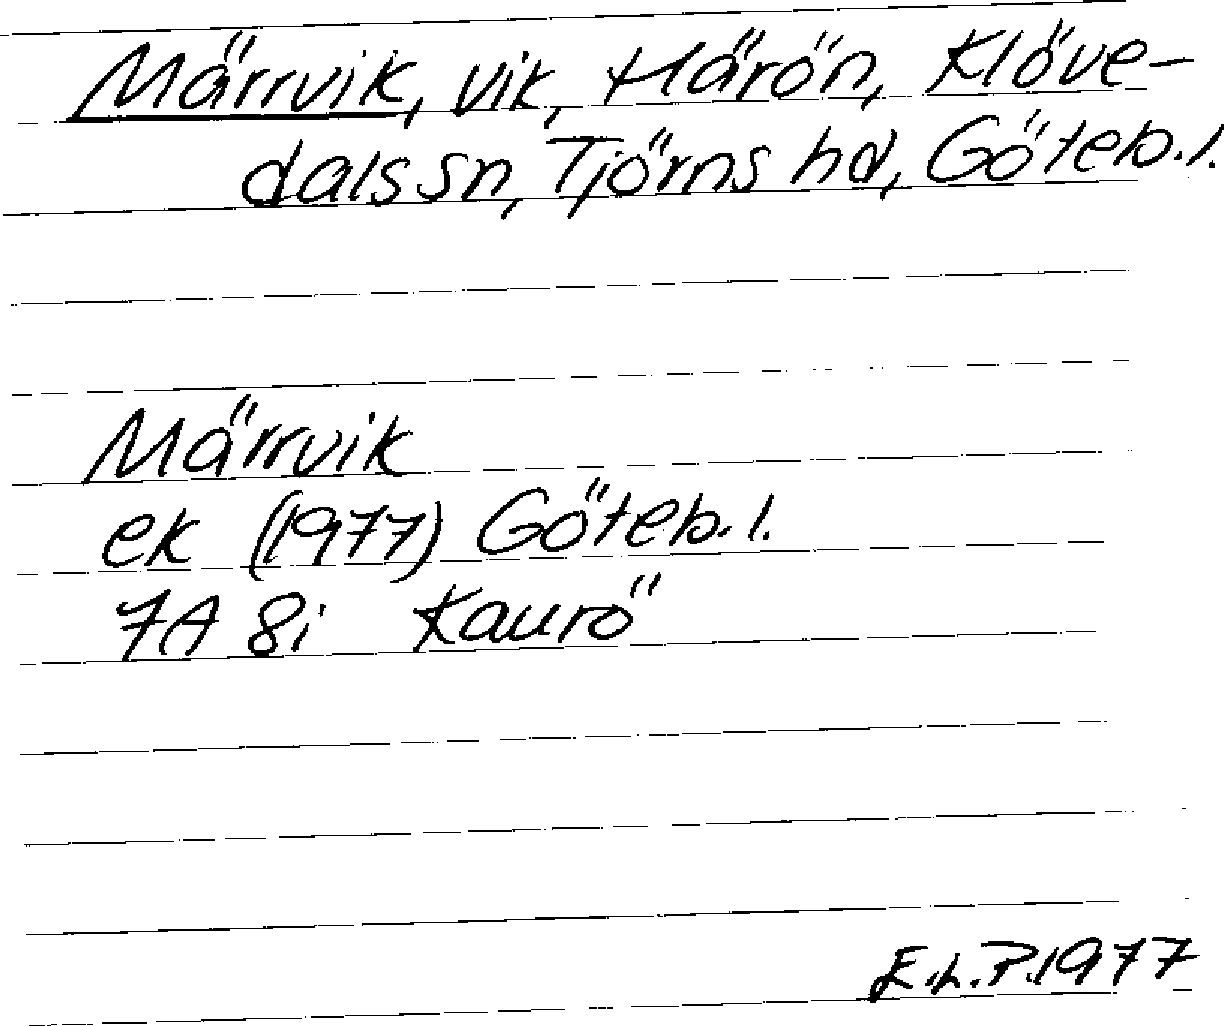 Märrvik, vik, Härön, Klöve-
dals sn, Tjörns hd, Göteb. l.
Märrvik
ek (1977) Göteb. l.
7A 8i Kaurö
E.L.P. 1977